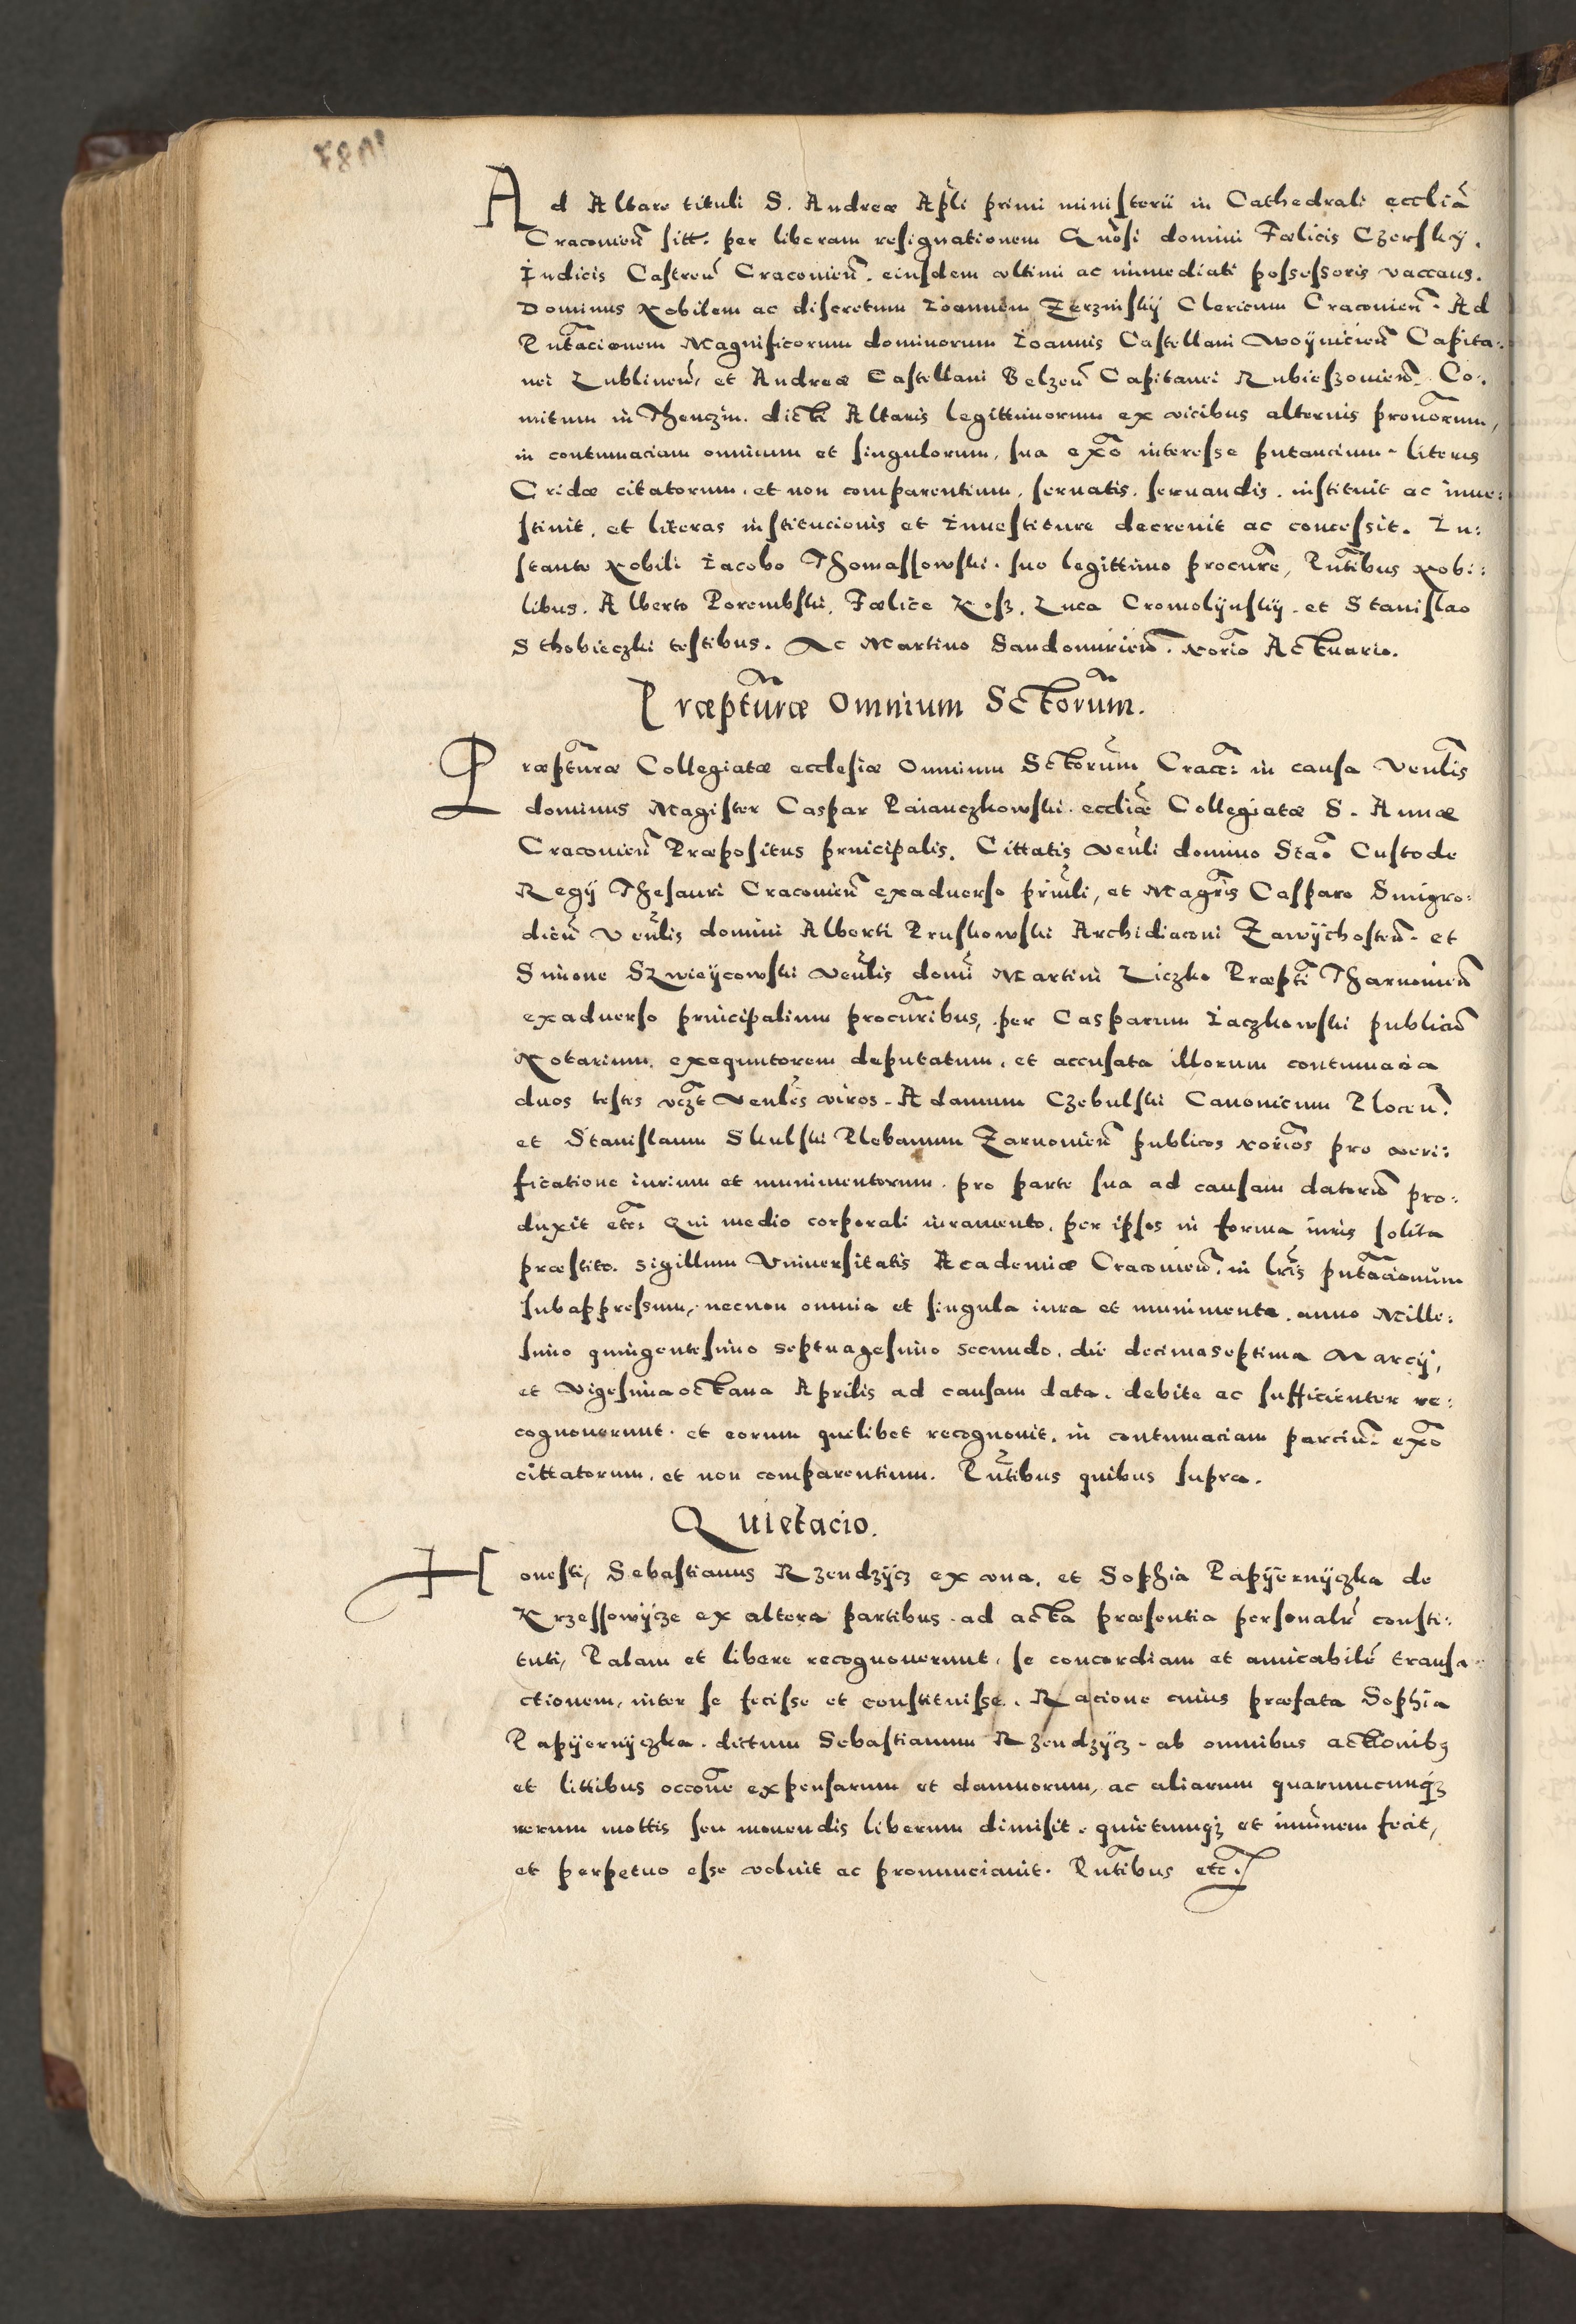 Ad Altare tituli S. Andreæ Apli primi ministerii in Cathedrali ecclia
Cracovien sitt. per liberam resignationem Gnosi domini Fœlicis Czerskÿ.
Iudicis Castren Cracovien. eiusdem vltimi ac immediati possessoris vaccans.
Dominus Nobilem ac discretum Ioannem Zerzinskÿ Clericum Cracovien. Ad
Pntacionem Magnificorum dominorum Ioannis Castellani Woÿnicien Capita:
nei Lublinen, et Andreæ Castellani Belzen Capitanei Rubieszovien. Co:
mitum in Thenczin. dicti Altaris legittimorum ex vicibus alternis pronorum,
in contumaciam omnium et singulorum, sua exo interesse putancium. literis
Cridæ citatorum. et non comparentium, seruatis. seruandis. instituit ac inue:
stiuit, et literas institucionis et Inuestiture decreuit ac concessit. In:
stante Nobili Iacobo Thomassowski. suo legittimo procure, Pntibus Nobi:
libus. Alberto Porembski, Fœlice Kosz. Luca Cromolÿnskÿ. et Stanislao
Sthobieczki testibus. Ac Martino Sandomirien. norio Actuario.
Præpturæ Omnium Sctorum.
Præpturæ Collegiatæ ecclesiæ Omnium Sctorum Cracc: in causa Venlis
dominus Magister Caspar Paianczkowski. eccliæ Collegiatæ S. Annæ
Cracovien Præpositus principalis. Cittatis Venli domino Stao Custode
Regÿ Thesauri Cracovien exaduerso prinli, et Magris Casparo Smigro:
dicen Venlis domini Alberti Pruskowski Archidiaconi Zawÿchosten. et
Simone Szwieÿcowski Venlis domi Martini Liczko Præpti Tharnovien
exaduerso principalium procuribus, per Casparum Iaczkowski publicum
Notarium. exequutorem deputatum. et accusata illorum contumacia
duos testes vczt Venles viros. Adamum Czebulski Canonicum Plocen.
et Stanislaum Skulski Plebanum Zarnovien publicos norios pro veri:
ficatione iurium et munimentorum. pro parte sua ad causam datorum pro:
duxit etc. Qui medio corporali iuramento. per ipsos in forma iuris solita
præstito. sigillum Vniuersitatis Academiæ Cracovien. in lris putacionum
subappressum, necnon omnia et singula iura et munimenta. anno Mille:
simo quingentesimo septuagesimo secundo. die decimaseptima Marcÿ,
et Vigesimaoctaua Aprilis ad causam data. debite ac sufficienter re:
cognouerunt. et eorum quilibet recognouit. in contumaciam parcium. exo
cittatorum. et non comparentium. Pntibus quibus supra.
Quietacio.
Honesti, Sebastianus Rzendzÿcz ex vna. et Sophia Papÿernÿczka de
Krzessowÿcze ex altera partibus. ad acta præsentia personalr consti:
tuti, Palam et libere recognouerunt. se concordiam et amicabile transa:
ctionem, inter se fecisse et constituisse. Racione cuius præfata Sophia
Papÿernÿczka. dictum Sebastianum Rzendzÿcz. ab omnibus actionibz
et littibus occone expensarum et damnorum, ac aliarum quarumcunqz
rerum mottis seu mouendis liberum dimisit. quietumqz et imunem fecit,
et perpetuo esse voluit ac pronunciauit. Pntibus etc.